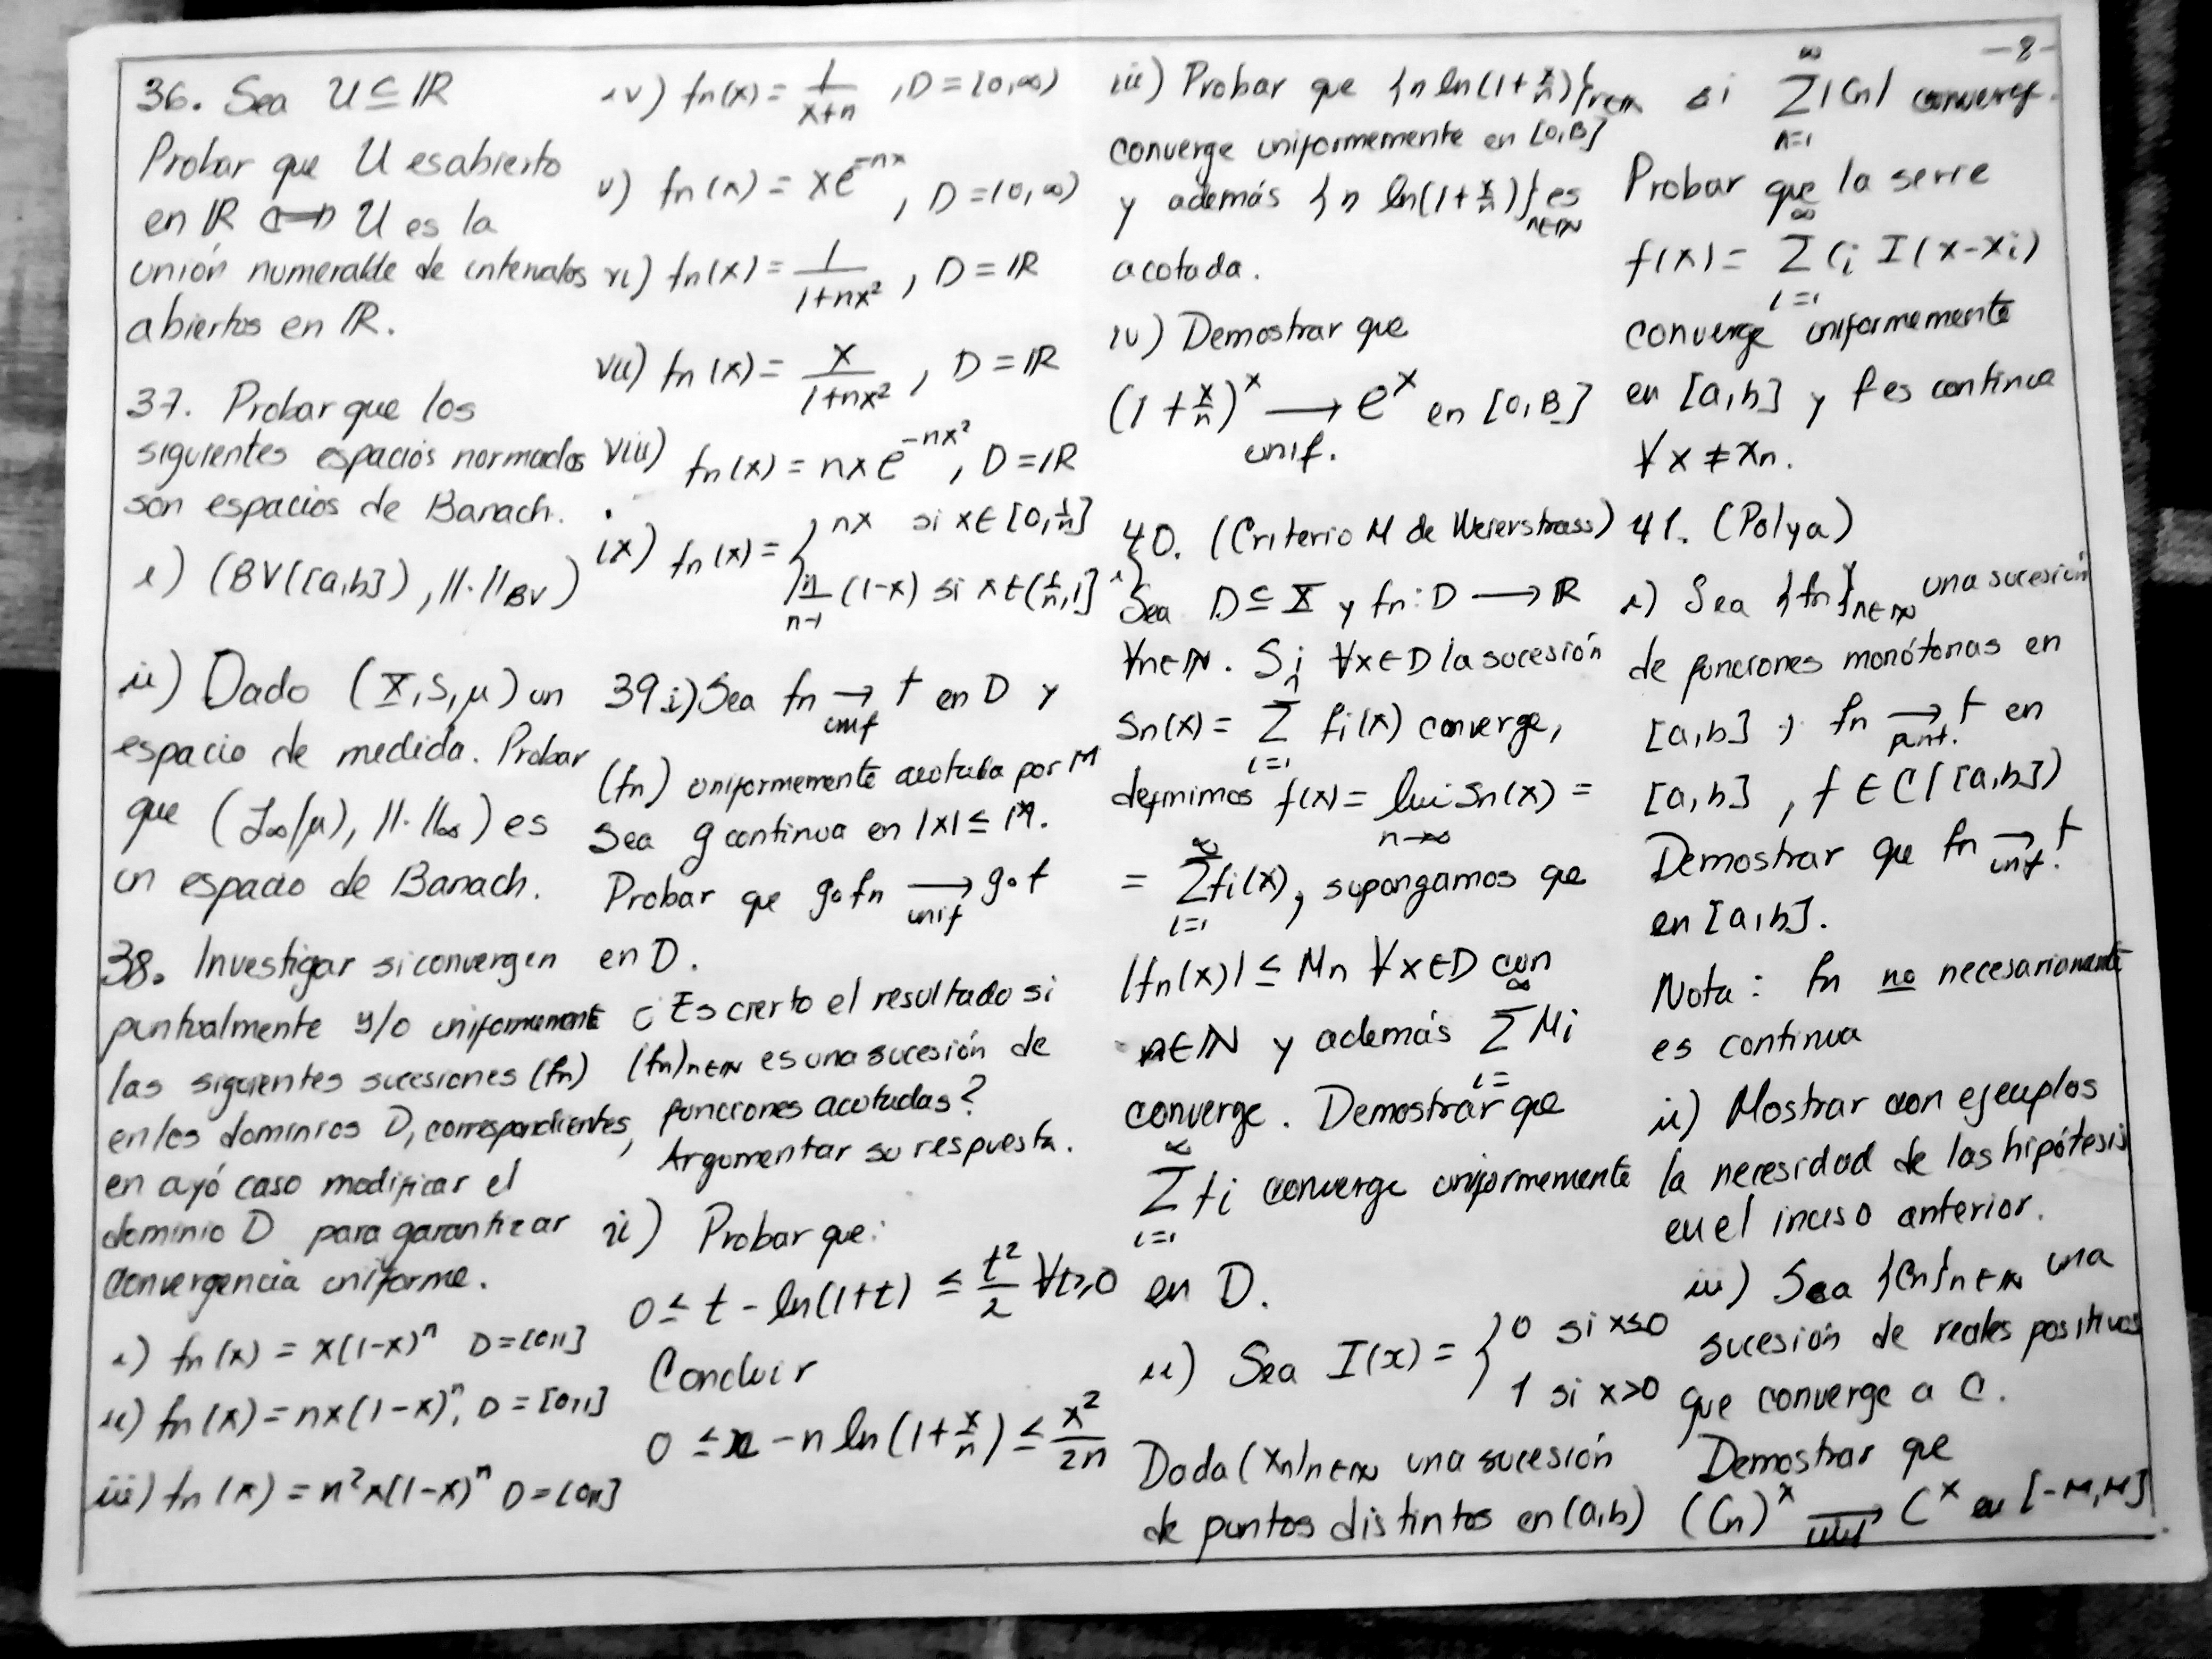 -8-
36. Sea U ⊆ ℝ
Probar que U es abierto
en ℝ ⟺ U es la
unión numerable de intervalos
abiertos en ℝ.
37. Probar que los
siguientes espacios normados
son espacios de Banach.
i) (BV([a,b]), ||·||BV)
ii) Dado (X, S, μ) un
espacio de medida. Probar
que (L∞(μ), ||·||∞) es
un espacio de Banach.
38. Investigar si convergen
puntualmente y/o uniformemente
las siguientes sucesiones (fn)
en los dominios D, correspondientes,
en cuyó caso modificar el
dominio D para garantizar
convergencia uniforme.
i) fn(x) = x(1-x)^n D=[0,1]
ii) fn(x) = nx(1-x)^n, D=[0,1]
iii) fn(x) = n²x(1-x)^n D=[0,1]
iv) fn(x) = 1/(x+n), D=[0,∞)
v) fn(x) = xe^{-nx}, D=(0,∞)
vi) fn(x) = 1/(1+nx²), D=ℝ
vii) fn(x) = x/(1+nx²), D=ℝ
viii) fn(x) = nx e^{-nx²}, D=ℝ
ix) fn(x) = { nx si x∈[0,1/n]
n/(n-1) (1-x) si x∈(1/n,1]
39. i) Sea fn → unif f en D y
(fn) uniformemente acotada por M
Sea g continua en |x| ≤ M.
Probar que g∘fn → unif g∘f
en D.
¿Es cierto el resultado si
(fn)n∈ℕ es una sucesión de
funciones acotadas?
Argumentar su respuesta.
ii) Probar que:
0 ≤ t - ln(1+t) ≤ t²/2 ∀t≥0
Concluir
0 ≤ x - n ln(1+x/n) ≤ x²/2n
iii) Probar que {n ln(1+x/n)}n∈ℕ
converge uniformemente en [0,B]
y además {n ln(1+x/n)}n∈ℕ es
acotada.
iv) Demostrar que
(1+x/n)^x → unif. e^x en [0,B]
40. (Criterio M de Weierstrass)
i) Sea D ⊆ X y fn: D → ℝ
∀n∈ℕ. Si ∀x∈D la sucesión
Sn(x) = Σ_{i=1}^{n} fi(x) converge,
definimos f(x) = lim_{n→∞} Sn(x) =
= Σ_{i=1}^{∞} fi(x), supongamos que
|fn(x)| ≤ Mn ∀x∈D con
n∈ℕ y además Σ_{i=}^{∞} Mi
converge. Demostrar que
Σ_{i=1}^{∞} fi converge uniformemente
en D.
ii) Sea I(x) = { 0 si x≤0
1 si x>0
Dada (xn)n∈ℕ una sucesión
de puntos distintos en (a,b)
si Σ_{n=1}^{∞} |Cn| converge.
Probar que la serie
f(x) = Σ_{i=1}^{∞} Ci I(x-xi)
converge uniformemente
en [a,b] y f es continua
∀x ≠ xn.
41. (Polya)
i) Sea {fn}n∈ℕ una sucesión
de funciones monótonas en
[a,b] y fn → punt. f en
[a,b], f ∈ C([a,b])
Demostrar que fn → unif. f
en [a,b].
Nota: fn no necesariamente
es continua
ii) Mostrar con ejemplos
la necesidad de las hipótesis
en el inciso anterior.
iii) Sea {Cn}n∈ℕ una
sucesión de reales positivos
que converge a C.
Demostrar que
(Cn)^x → unif C^x en [-M,M]